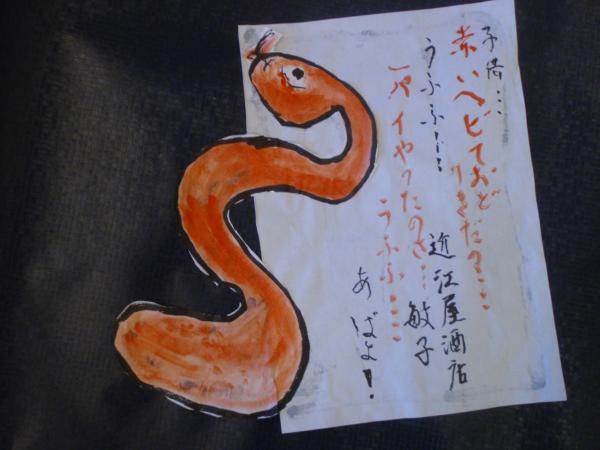 子供…
赤いヘビておど
りきだの…
うふふ…
一パイやったのさ…
うふふ…
近江屋酒店
敏子
あばよ!